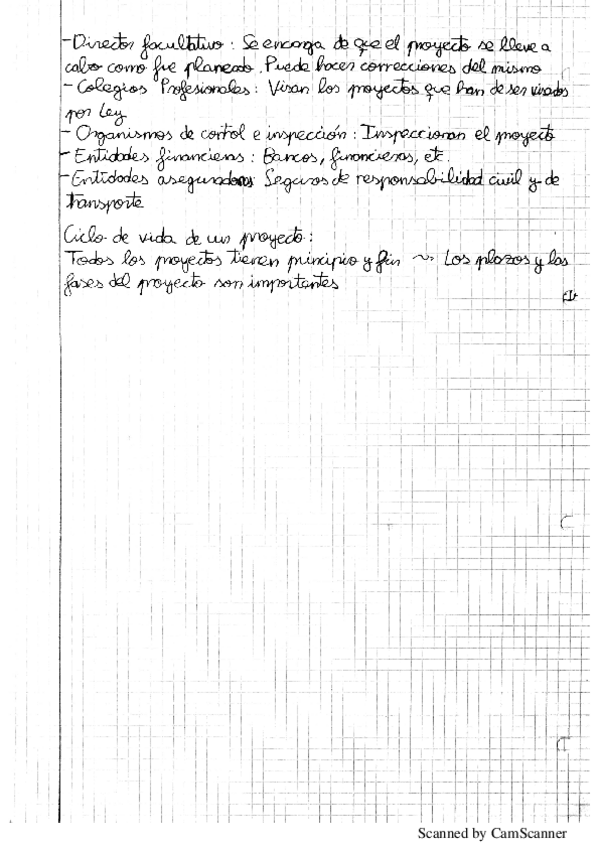 -Director facultativo: Se encarga de que el proyecto se lleve a
cabo como fue planeado. Puede hacer correcciones del mismo
- Colegios Profesionales: Visan los proyectos que han de ser visados
por Ley
- Organismos de control e inspección: Inspeccionan el proyecto
- Entidades financieras: Bancos, financieras, etc.
- Entidades aseguradoras Seguros de responsabilidad civil y de
transporte
Ciclo de vida de un proyecto:
Todos los proyectos tienen principio y fin ~ Los plazos y las
fases del proyecto son importantes
Scanned by CamScanner